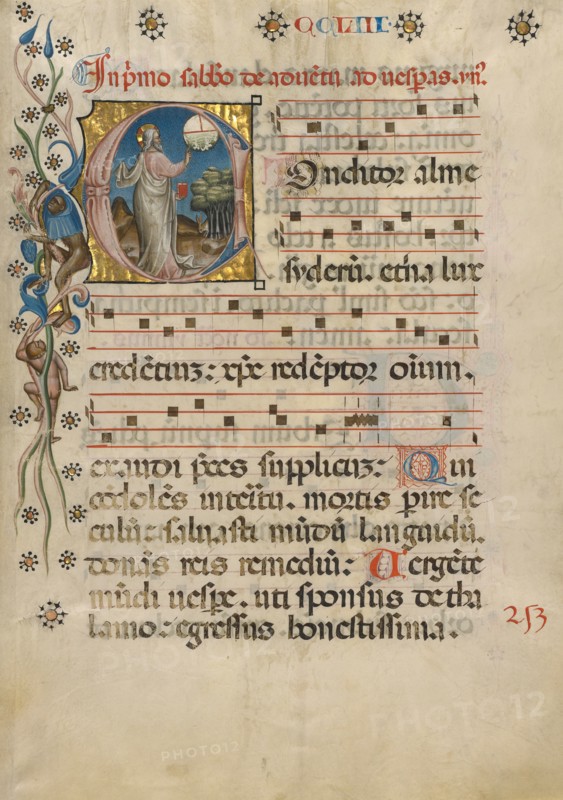 CCLIII
In p̄mo sabb̄o de aduētu ad uesp̄as. yn̄.
Onditor alme
syderū. etn̄a lux
credētiuꝫ: xp̄e redēptor oīum.
exaudi p̄ces supplicuꝫ: Qui
cōdolēs interitu. mortis perire se
culū: saluasti mūdū languidū.
donās reis remediū: Uergēte
mūdi uesꝑe. uti sponsus de tha
lamo: egressus honestissima.
253
PHOTO12
PHOTO12